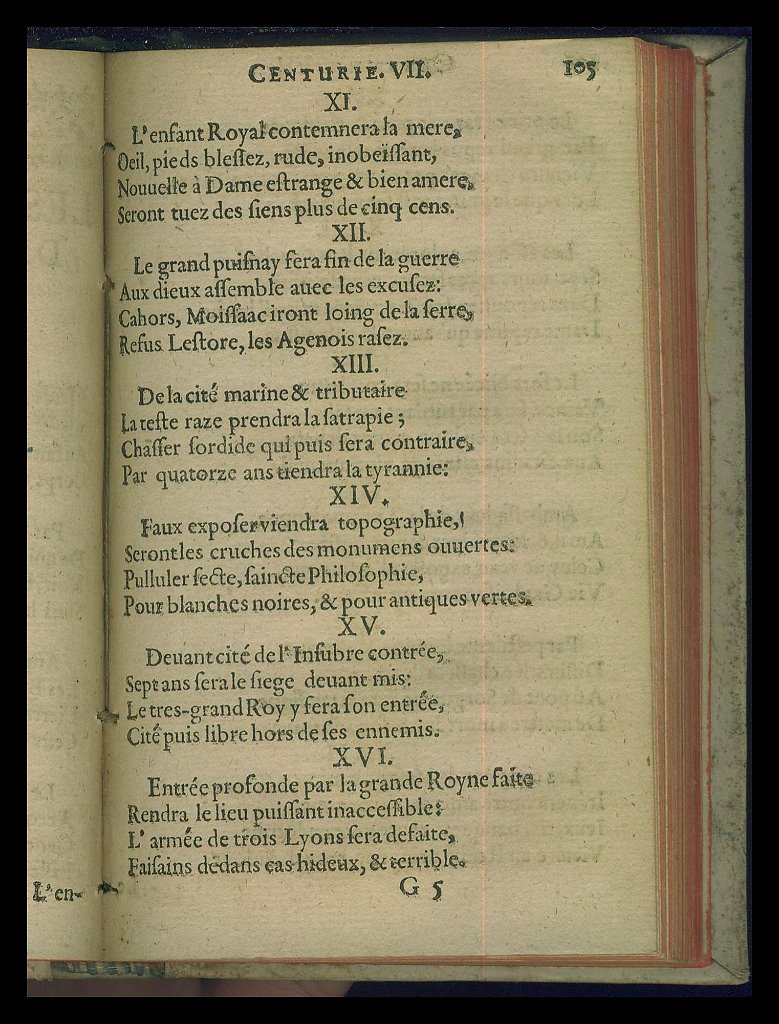 CENTURIE. VII. 105
XI.
L'enfant Royal contemnera la mere,
Oeil, pieds bleſſez, rude, inobeïſſant,
Nouuelle à Dame eſtrange & bien amere,
Seront tuez des ſiens plus de cinq cens.
XII.
Le grand puiſnay ſera fin de la guerre
Aux dieux aſſemble auec les excuſez:
Cahors, Moiſſaac iront loing de la ſerre,
Refus Leſtore, les Agenois raſez.
XIII.
De la cité marine & tributaire
La teſte raze prendra la ſatrapie;
Chaſſer ſordide qui puis ſera contraire,
Par quatorze ans tiendra la tyrannie:
XIV.
Faux expoſer viendra topographie,
Seront les cruches des monumens ouuertes:
Pulluler ſecte, ſaincte Philoſophie,
Pour blanches noires, & pour antiques vertes.
XV.
Deuant cité de l'Inſubre contrée,
Sept ans ſera le ſiege deuant mis:
Le tres-grand Roy y fera ſon entrée,
Cité puis libre hors de ſes ennemis.
XVI.
Entrée profonde par la grande Royne faite
Rendra le lieu puiſſant inacceſſible:
L'armée de trois Lyons ſera defaite,
Faiſains dedans cas hideux, & terrible.
G 5
L'en-